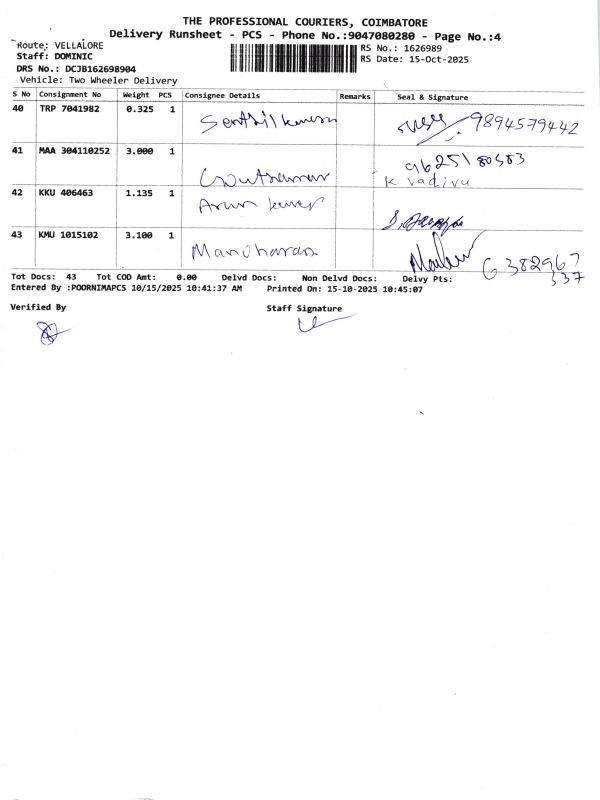 THE PROFESSIONAL COURIERS, COIMBATORE
Delivery Runsheet - PCS - Phone No.:9047080280 - Page No.:4
Route: VELLALORE
RS No.: 1626989
Staff: DOMINIC
RS Date: 15-Oct-2025
DRS No.: DCJB162698904
Vehicle: Two Wheeler Delivery
S No Consignment No Weight PCS Consignee Details Remarks Seal & Signature
40 TRP 7041982 0.325 1 Senthil kumar 9894579442
41 MAA 304110252 3.000 1 Gouthaman
K. Vadivu
42 KKU 406463 1.135 1 Arun kumar
43 KMU 1015102 3.100 1 Manoharan 6382967
337
Tot Docs: 43 Tot COD Amt: 0.00 Delvd Docs: Non Delvd Docs: Delvy Pts:
Entered By :POORNIMAPCS 10/15/2025 10:41:37 AM Printed On: 15-10-2025 10:45:07
Verified By Staff Signature